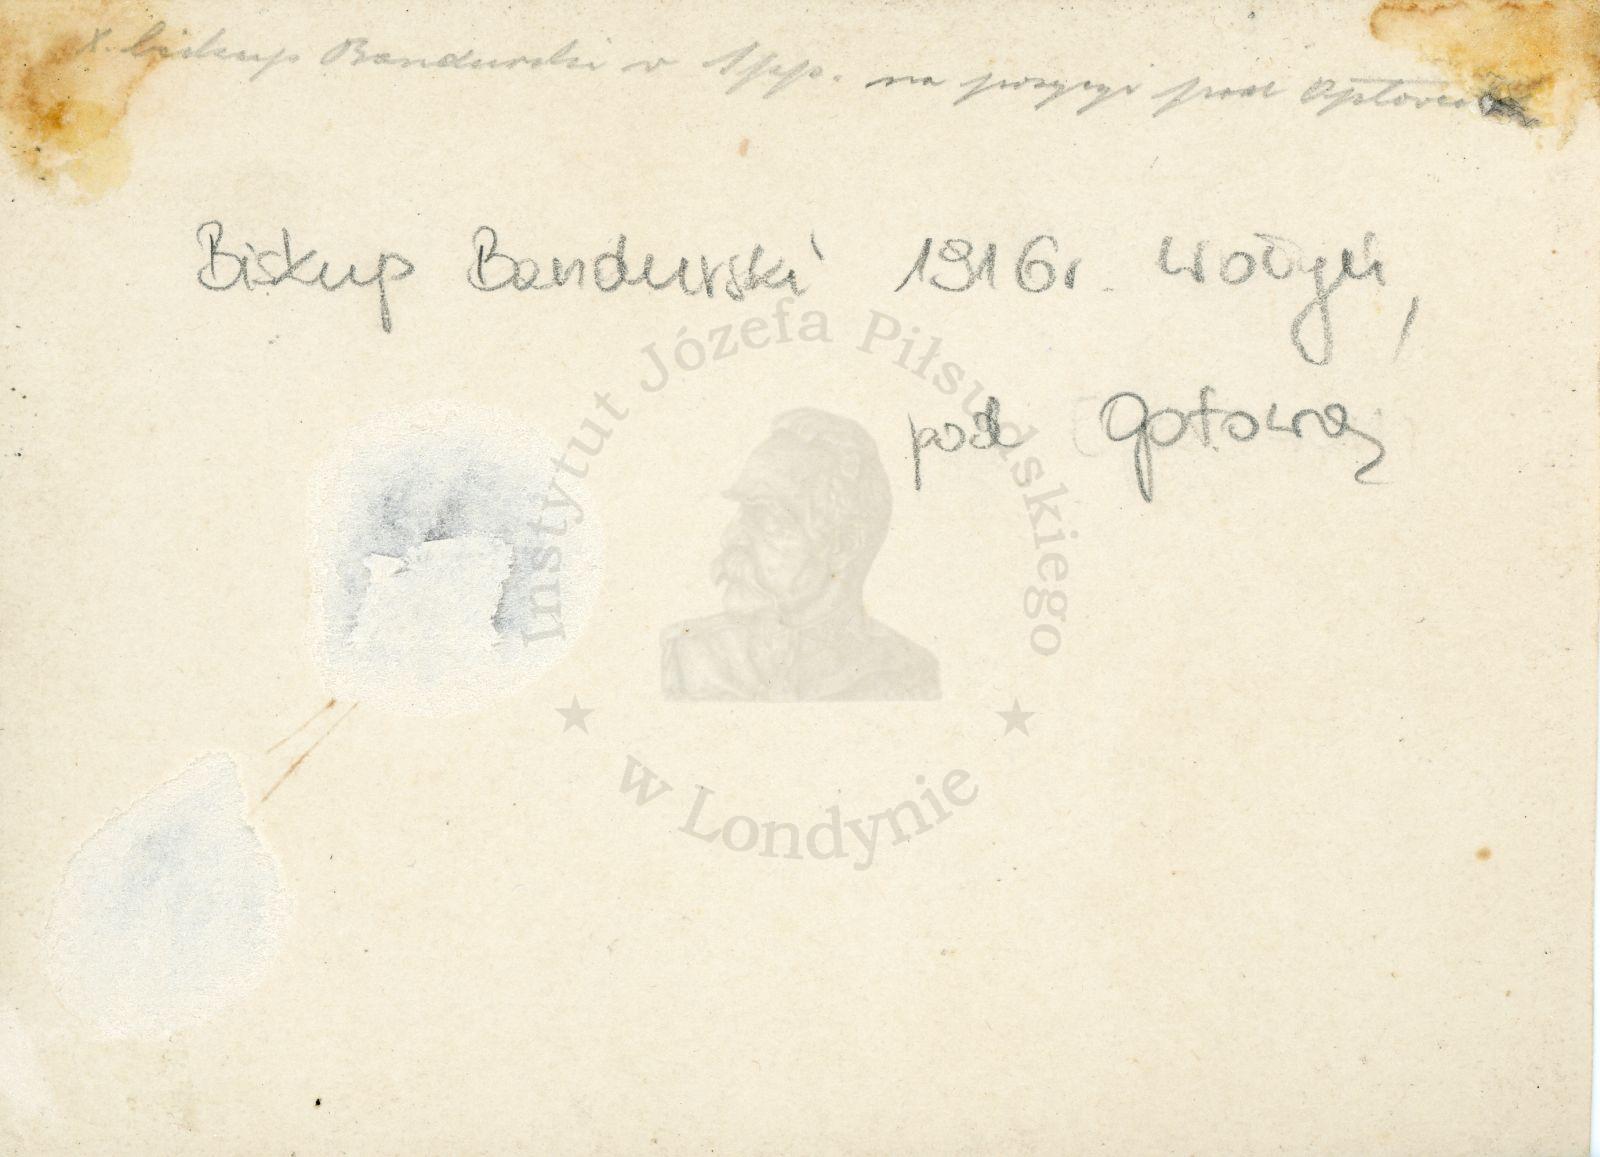 X. biskup Bandurski w 1 pp. na pozycyi pod
Biskup Bandurski 1916 r. Wołyń,
pod Gotową
Instytut Józefa Piłsudskiego
w Londynie